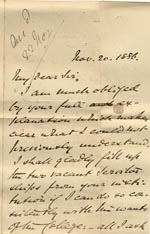 Nov. 20. 1886.
My dear Sir,
I am much obliged
by your full ex-
planation which makes
clear what I could not
previously understand.
I shall gladly fill up
the two vacant
ships from your insti-
tution if I can do so con-
sistently with the wants
of the College - all I ask